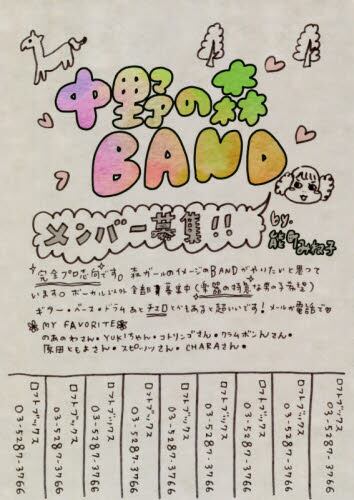 中野の森
BAND
メンバー募集!!
by.
能町みね子
完全プロ志向です。森ガールのイメージのBANDがやりたいと思って
います。ボーカル以外全部募集中(楽器の得意な男の子希望)
ギター・ベース・ドラムあとチェロとかもあると超いいです!メールか電話で
MY FAVORITE
のあのわさん・YUKIちゃん・コトリンゴさん・クラムボンさん・
原田ともよさん・スピッツさん・CHARAさん・
ロフトブックス
03-5287-3766
ロフトブックス
03-5287-3766
ロフトブックス
03-5287-3766
ロフトブックス
03-5287-3766
ロフトブックス
03-5287-3766
ロフトブックス
03-5287-3766
ロフトブックス
03-5287-3766
ロフトブックス
03-5287-3766
ロフトブックス
03-5287-3766